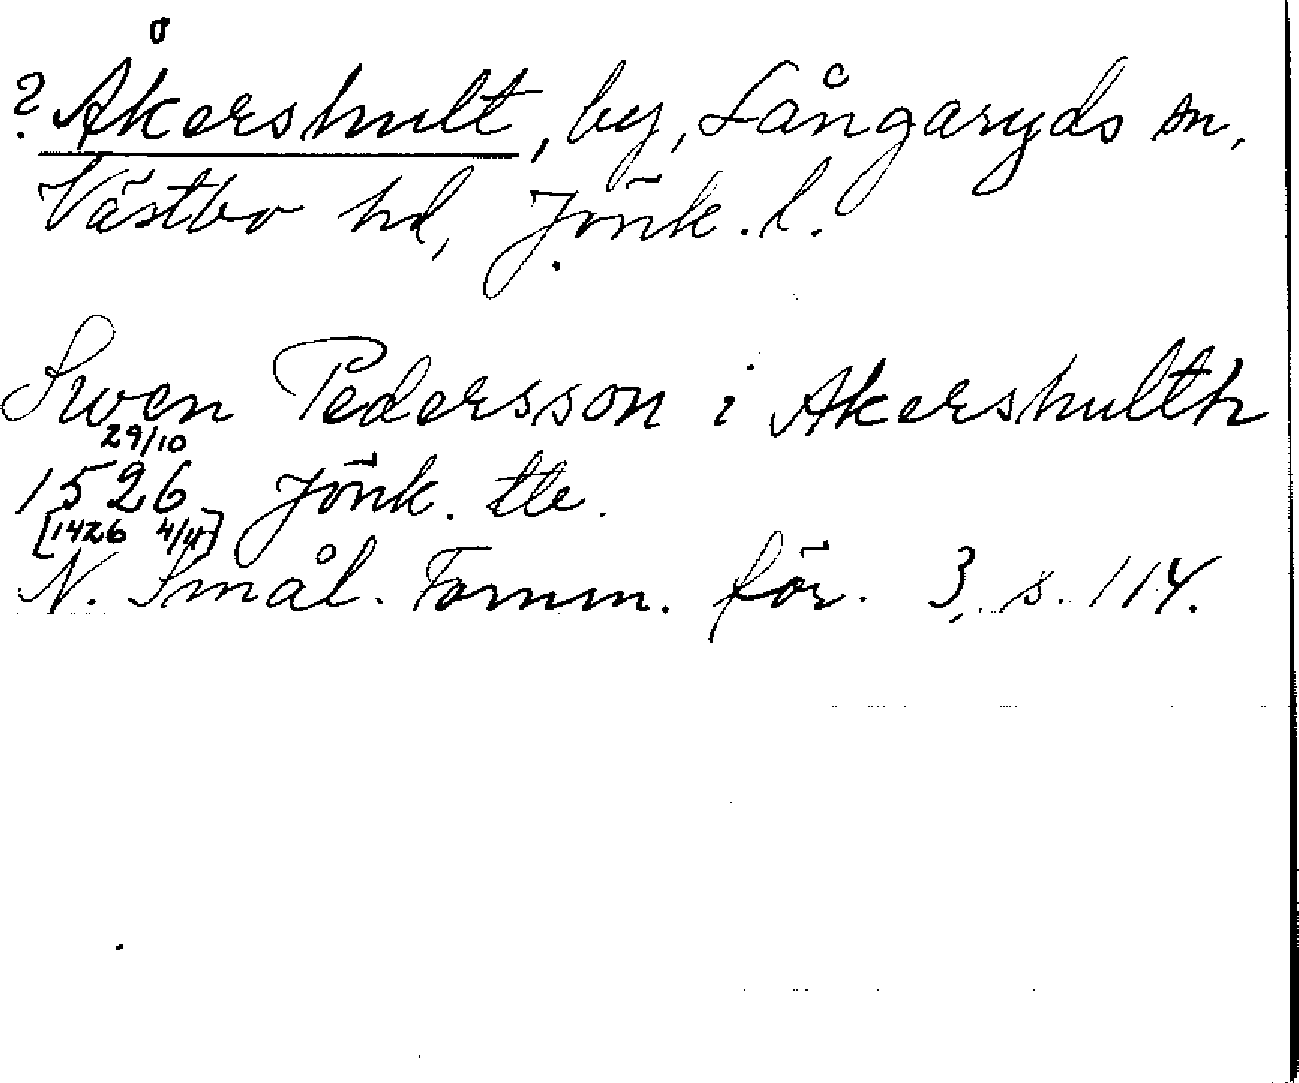 o
? Åkershult, by, Långaryds sn,
Västbo hd, Jönk. l.
Swen Pedersson i Akershulth
29/10
1526 Jönk. tle.
[1426 4/11]
N. Smål. Fornm. för. 3, s. 114.